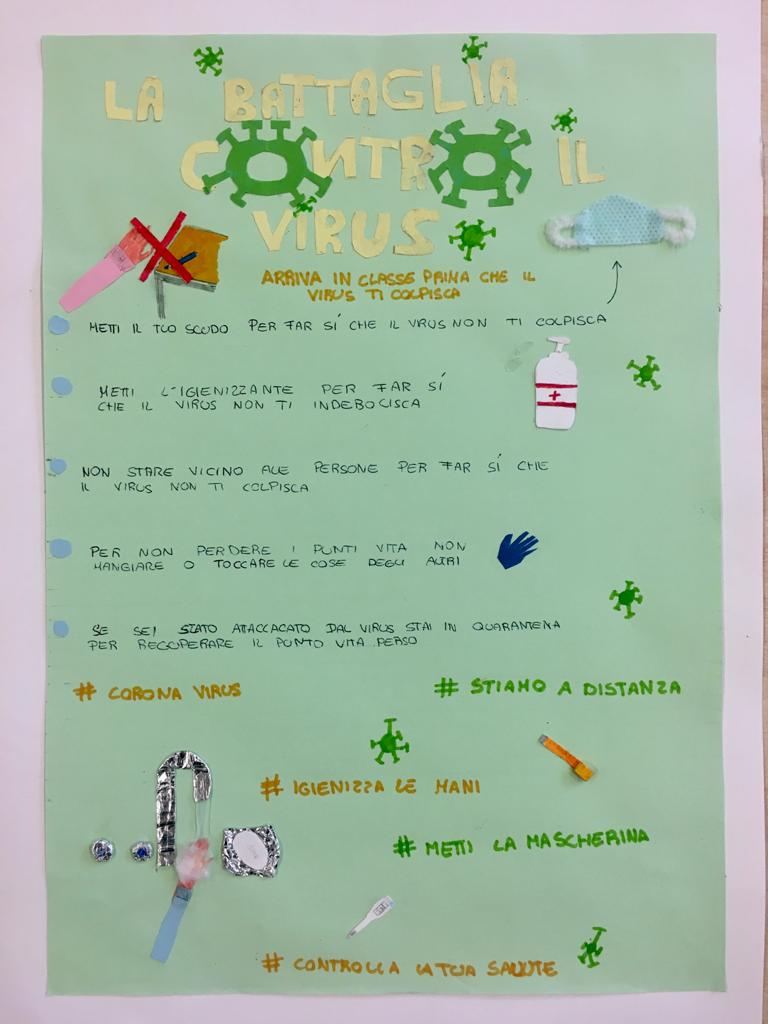 LA BATTAGLIA
CONTRO IL
VIRUS
ARRIVA IN CLASSE PRIMA CHE IL
VIRUS TI COLPISCA
METTI IL TUO SCUDO PER FAR SÍ CHE IL VIRUS NON TI COLPISCA
METTI L'IGIENIZZANTE PER FAR SÍ
CHE IL VIRUS NON TI INDEBOLISCA
NON STARE VICINO ALLE PERSONE PER FAR SÍ CHE
IL VIRUS NON TI COLPISCA
PER NON PERDERE I PUNTI VITA NON
MANGIARE O TOCCARE LE COSE DEGLI ALTRI
SE SEI STATO ATTACCATO DAL VIRUS STAI IN QUARANTENA
PER RECUPERARE IL PUNTO VITA PERSO
# CORONA VIRUS
# STIAMO A DISTANZA
# IGIENIZZA LE MANI
# METTI LA MASCHERINA
# CONTROLLA LA TUA SALUTE